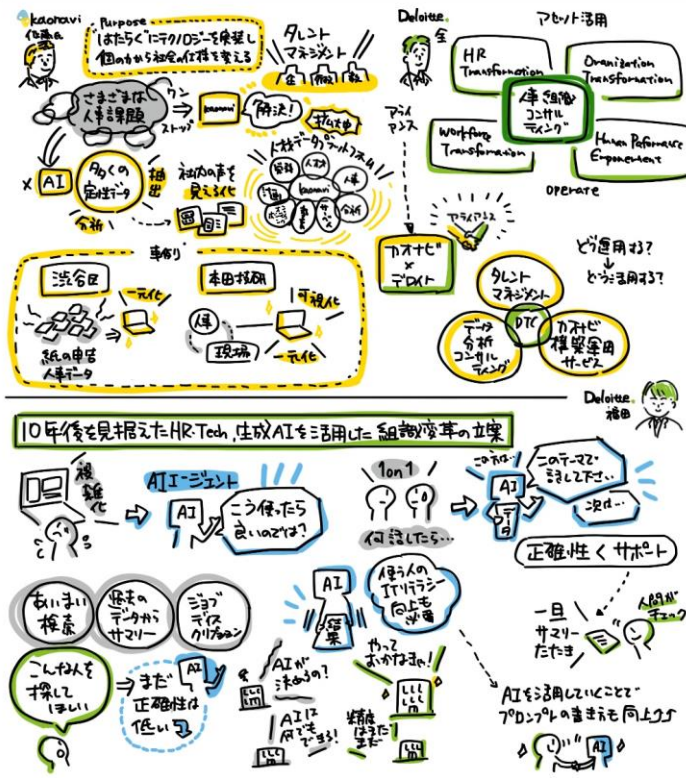 kaonavi
Purpose
"はたらく"にテクノロジーを実装し
個の力から社会の仕様を変える
タレント
マネジメント
さまざまな
人事課題
ワン
ストップ
kaonavi
解決!
× AI
多くの
定性データ
抽出
分析
社内の声を
見える化
人材データプラットフォーム
kaonavi
人事
分析
事例
渋谷区
紙の申告
人事データ
一元化
本田技研
人事
現場
可視化
一元化
Deloitte.
アセット活用
HR
Transformation
Oranization
Transformation
人事組織
コンサル
ティング
Workforce
Transformation
Human Paformance
Emponement
operate
アライ
アンス
アライアンス
カオナビ
×
デロイト
どう運用する?
↓
どう活用する?
タレント
マネジメント
DTC
データ
分析
コンサル
ティング
カオナビ
構築運用
サービス
Deloitte.
福田
10年後を見据えたHR-Tech,生成AIを活用した組織変革の立案
複雑化
AIエージェント
AI
こう使ったら
良いのでは?
1on1
何話したら…
この方は…
AI
データ
このテーマで
話して下さい
次は…
正確性<サポート
一旦
サマリー
たたき
人間が
チェック
あいまい
検索
過去の
データから
サマリー
ジョブ
ディス
クリプション
こんな人を
探して
ほしい
AI
まだ
正確性は
低い
AI
結果
使う人の
ITリテラシー
向上も
必要
AIが
決めるの?
AIは
何でも
できる!
やって
おかなきゃ!
精度
はまだ
まだ
AIを活用していくことで
プロンプトの書き方も向上
AI